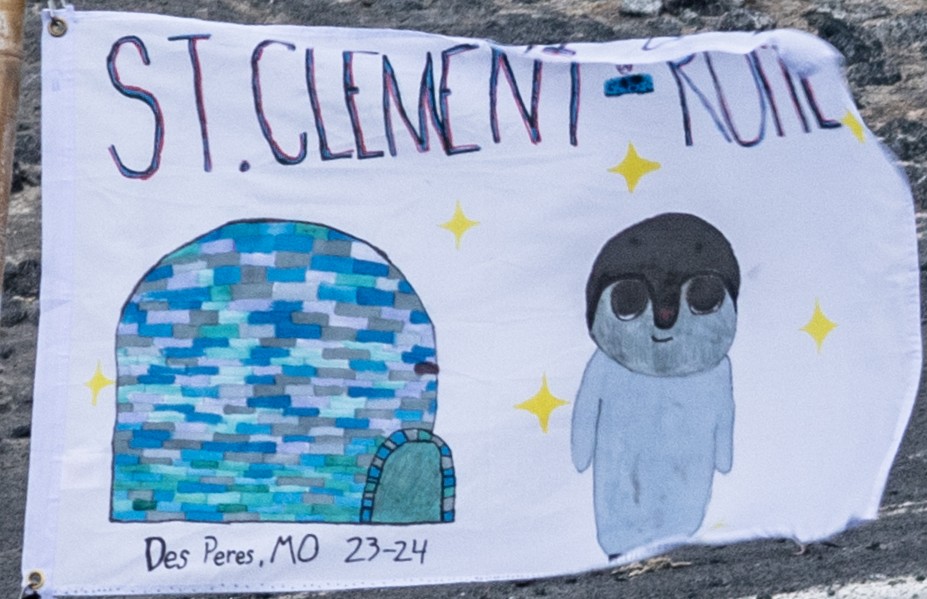 ST. CLEMENT
Des Peres, MO 23-24